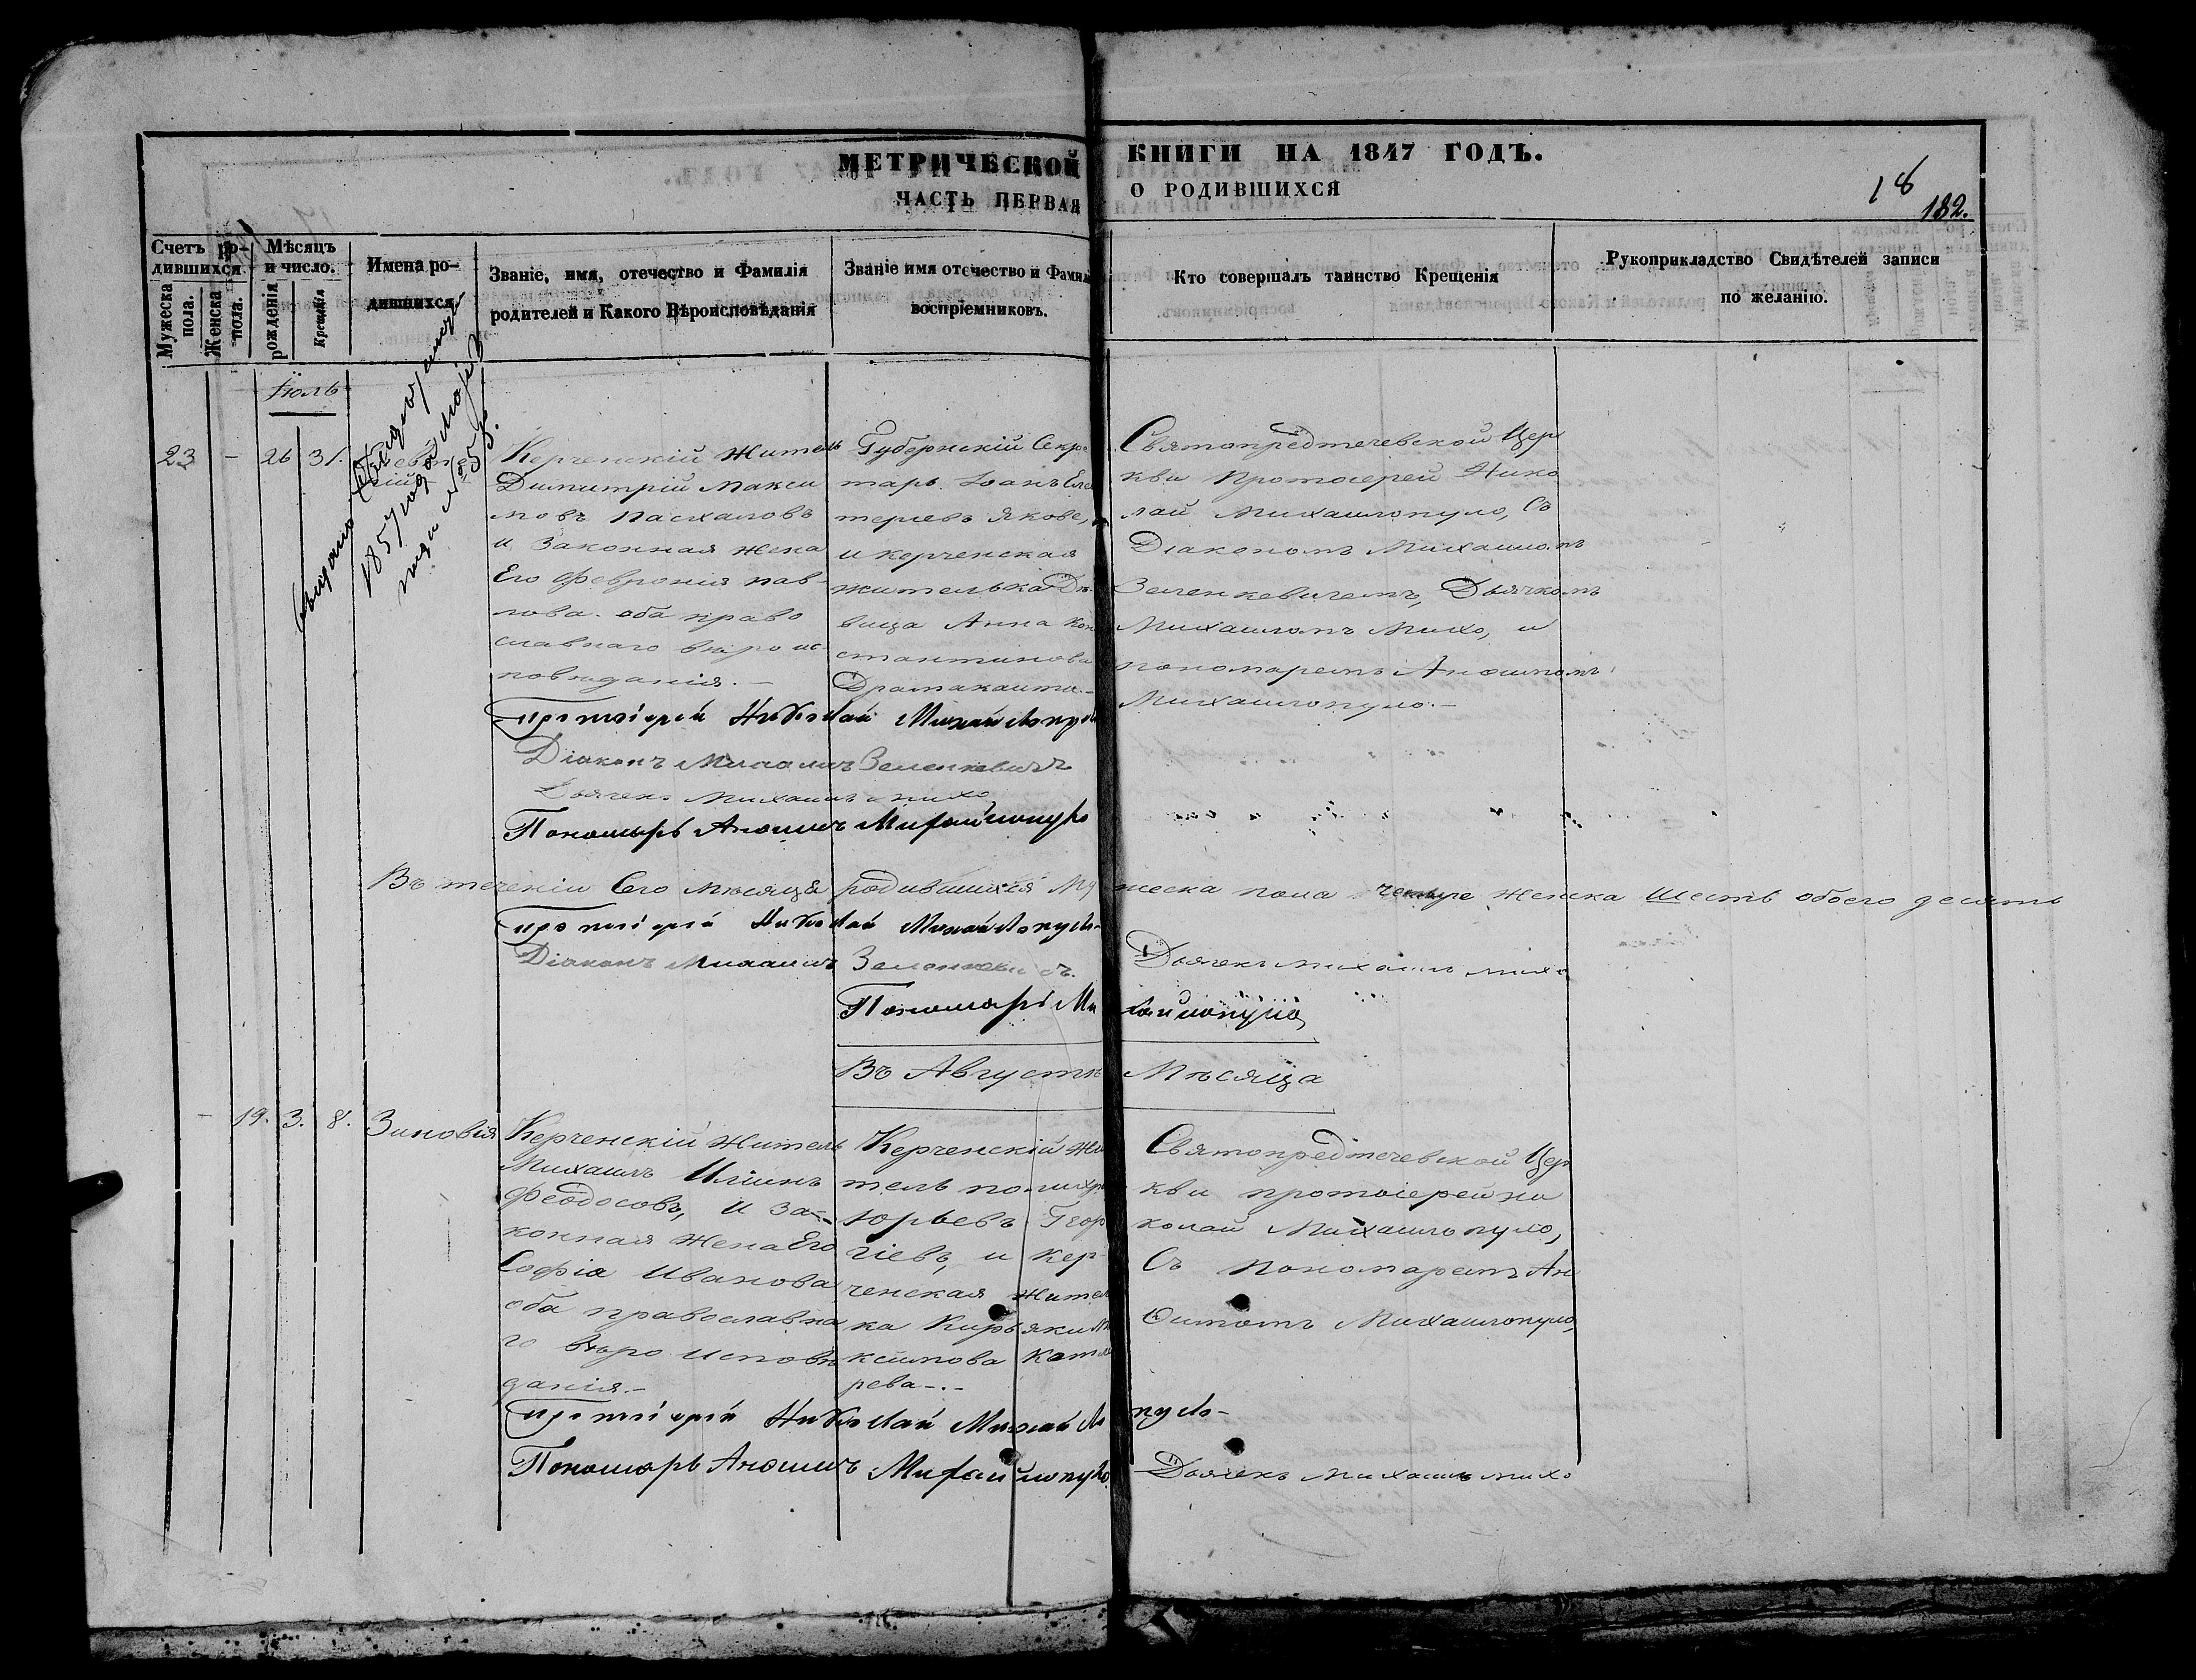 МЕТРИЧЕСКОЙ КНИГИ НА 1847 ГОДЪ.
ЧАСТЬ ПЕРВАЯ О РОДИВШИХСЯ
18
182.
Счетъ ро-
дившихся
Мужеска
пола.
Женска
пола.
Мѣсяцъ
и число.
рожденія
Крещенія
Имена ро-
дившихся
Званіе, имя, отечество и Фамилія
родителей и Какого Вѣроисповѣданія
Званіе имя отечество и Фамил
воспріемниковъ.
Кто совершалъ таинство Крещенія
Рукоприкладство Свидѣтелей записи
по желанію.
Іюль
23
-
26
31.
1857 года
№ 55.
Керченскій Житель
Димитрій Макси
мовъ Пасхаловъ
и Законная жена
Его Феврония Пав-
лова. оба право
славнаго вѣро ис-
повѣданія. -
Губернскій Секре
тарь Іоанъ Еле
терьевъ Якове,
и керченская
жителька Дѣ
вица Анна Кон
стантинова
Святопредтечевской Цер
кви Протоіерей Нико
лай Михаилопуло, Съ
Діакономъ Михаиломъ
Зеленкевичемъ, Дьячкомъ
Михаиломъ Михо, и
пономаремъ Анфимомъ
Михаилопуло. -
Протоіерей Николай Михайлопуло
Діаконъ Михаилъ Зеленкевичъ
Дьячекъ Михаилъ Михо
Пономарь Анфимъ Михайлопуло
Въ теченіи Сего Мѣсяца родившихся Мужеска пола четыре Женска Шесть обоего десять
Протоіерей Николай Михайлопуло-
Діаконъ Михаилъ Зеленкевичъ. Дьячекъ Михаилъ Михо
Пономарь Михайлопуло
Въ Августѣ Мѣсяца
-
19.
3.
8.
Зиновія
Керченскій Житель
Михаилъ Ильинъ
Феодосовъ, и За-
конная жена Его
Софія Иванова
оба православна
го вѣро исповѣ
данія. -
Керченскій Жи
тель
Юрьевъ Геор
гіевъ, и кер-
ченская жител
ка Кирьяки Ма
ксимова Кат
рева -.-
Святопредтечевской Цер
кви протоіерей Ни
колай Михаилопуло,
Съ Пономаремъ Ан
фимомъ Михаилопуло,
Протоіерей Николай Михайлопуло-
Пономарь Анфимъ Михайлопуло. Дьячекъ Михаилъ Михо